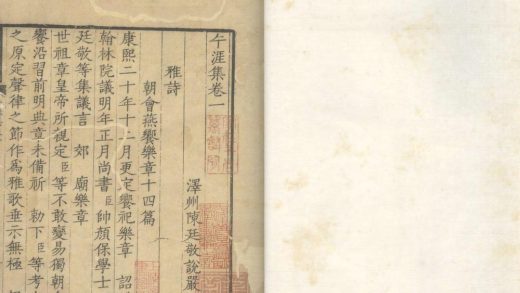 午涯集卷一
澤州陳廷敬說嚴
雅詩
朝會燕饗樂章十四篇
康熙二十年十二月更定饗祀樂章 詔
翰林院議明年正月尚書臣帥顏保學士
廷敬等集議言 郊 廟樂章
世祖章皇帝所視定臣等不敢變易獨朝
饗沿習前明典章未備祈 勅下臣等考
之原定聲律之節作爲雅歌垂示無極